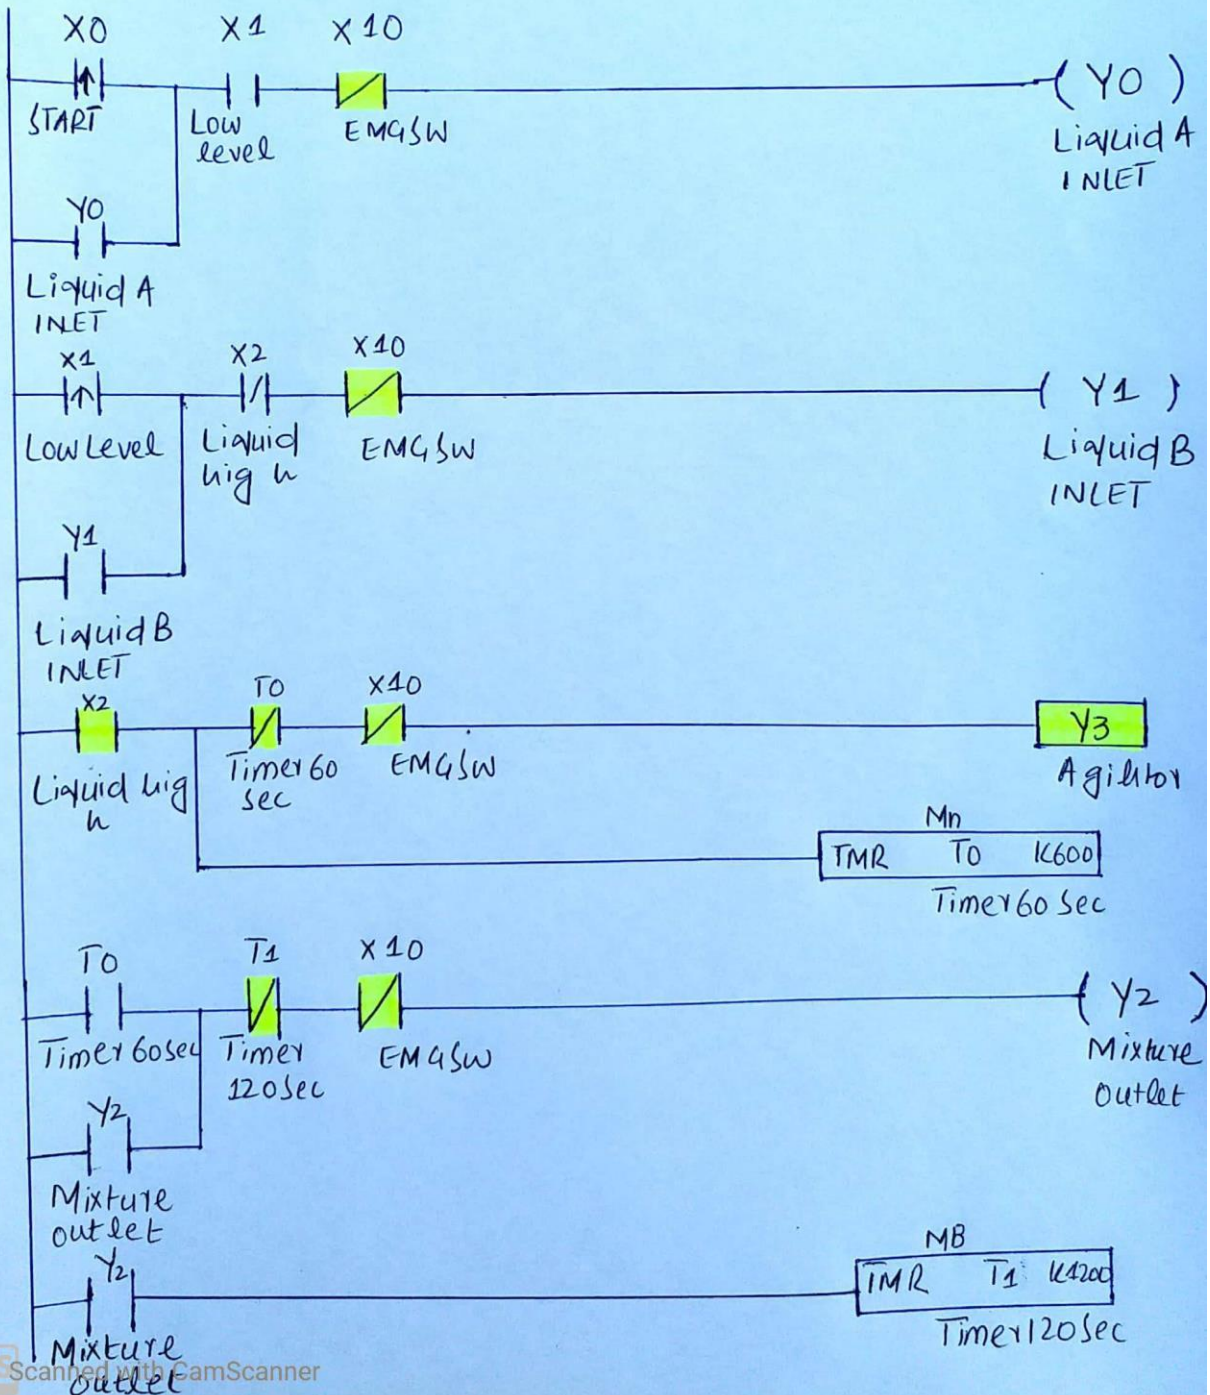 X0 X1 X10
( Y0 )
START Low level EMGSW
Liquid A
INLET
Y0
Liquid A
INLET
X1 X2 X10
( Y1 )
Low Level Liquid hig h EMGSW
Liquid B
INLET
Y1
Liquid B
INLET
X2 T0 X10
Y3
Liquid hig h Timer 60 sec EMGSW
Mn
TMR T0 K600
Timer 60 Sec
T0 T1 X10
( Y2 )
Timer 60sec Timer 120sec EMGSW
Mixture
outlet
Y2
Mixture
outlet
Y2
MB
TMR T1 K1200
Mixture
outlet
Timer 120 Sec
Scanned with CamScanner